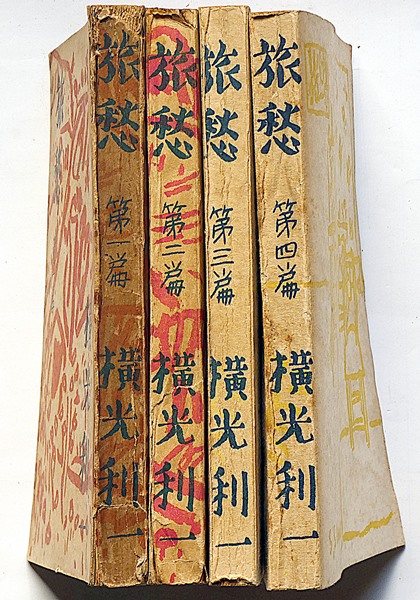 旅愁 第一篇 横光利一
旅愁 第二篇 横光利一
旅愁 第三篇 横光利一
旅愁 第四篇 横光利一